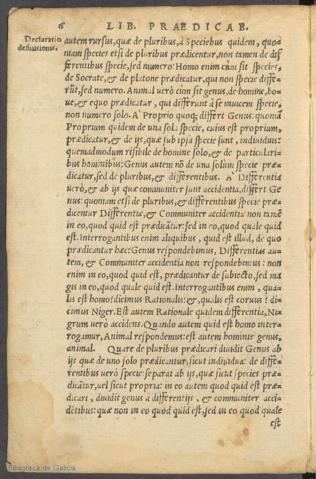 6 LIB. PRÆDICAB.
Declaratio
definitionis.
autem rursus, quæ de pluribus, à Speciebus quidem, quo-
niam species etsi de pluribus prædicentur, non tamen de dif
ferentibus specie, sed numero: Homo enim cùm sit species,
de Socrate, & de platone prædicatur, qui non specie diffe-
rũt, sed numero. Animal uerò cùm sit genus, de homine, bo-
ue, & equo prædicatur, qui differunt à se inuicem specie,
non numero solo. A' Proprio quoq; differt Genus: quoniã
Proprium quidem de una sola specie, cuius est proprium,
prædicatur, & de ijs, quæ sub ipsa specie sunt, indiuiduis:
quemadmodum risibile de homine solo, & de particulari-
bus hominibus: Genus autem nõ de una solùm specie præ-
dicatur, sed de pluribus, & differentibus. A' Differentia
uerò, & ab ijs quæ communiter sunt accidentia, differt Ge
nus: quoniam etsi de pluribus, & differentibus specie præ-
dicentur Differentiæ, & Communiter accidentia: non tamẽ
in eo, quod quid est prædicãtur: sed in eo, quod quale quid
est. Interrogantibus enim aliquibus, quid est illud, de quo
prædicantur hæc: Genus respondebimus, Differentias au-
tem, & Communiter accidentia non respondebimus: non
enim in eo, quod quid est, prædicantur de subiecto, sed ma
gis in eo, quod quale quid est. Interrogantibus enim, qua-
lis est homo: dicimus Rationalis: &, qualis est coruus: di-
cimus Niger. Est autem Rationale quidem differentia, Ni-
grum uerò accidens. Quando autem quid est homo inter-
rogamur, Animal respondemus: est autem hominis genus,
animal. Quare de pluribus prædicari diuidit Genus ab
ijs quæ de uno solo prædicantur, sicut indiuidua: de diffe-
rentibus uerò specie: separat ab ijs, quæ sicut species præ-
dicãtur, uel sicut propria: in eo autem quod quid est præ-
dicari, diuidit genus à differentijs, & communiter acci-
dẽtibus: quæ non in eo quod quid est, sed in eo quod quale
est
Biblioteca de Galicia